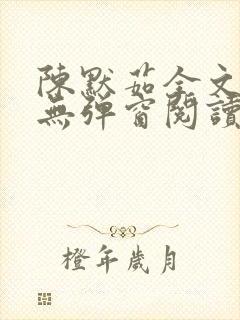 陳默茹全文
無彈窗閱讀
橙年歲月